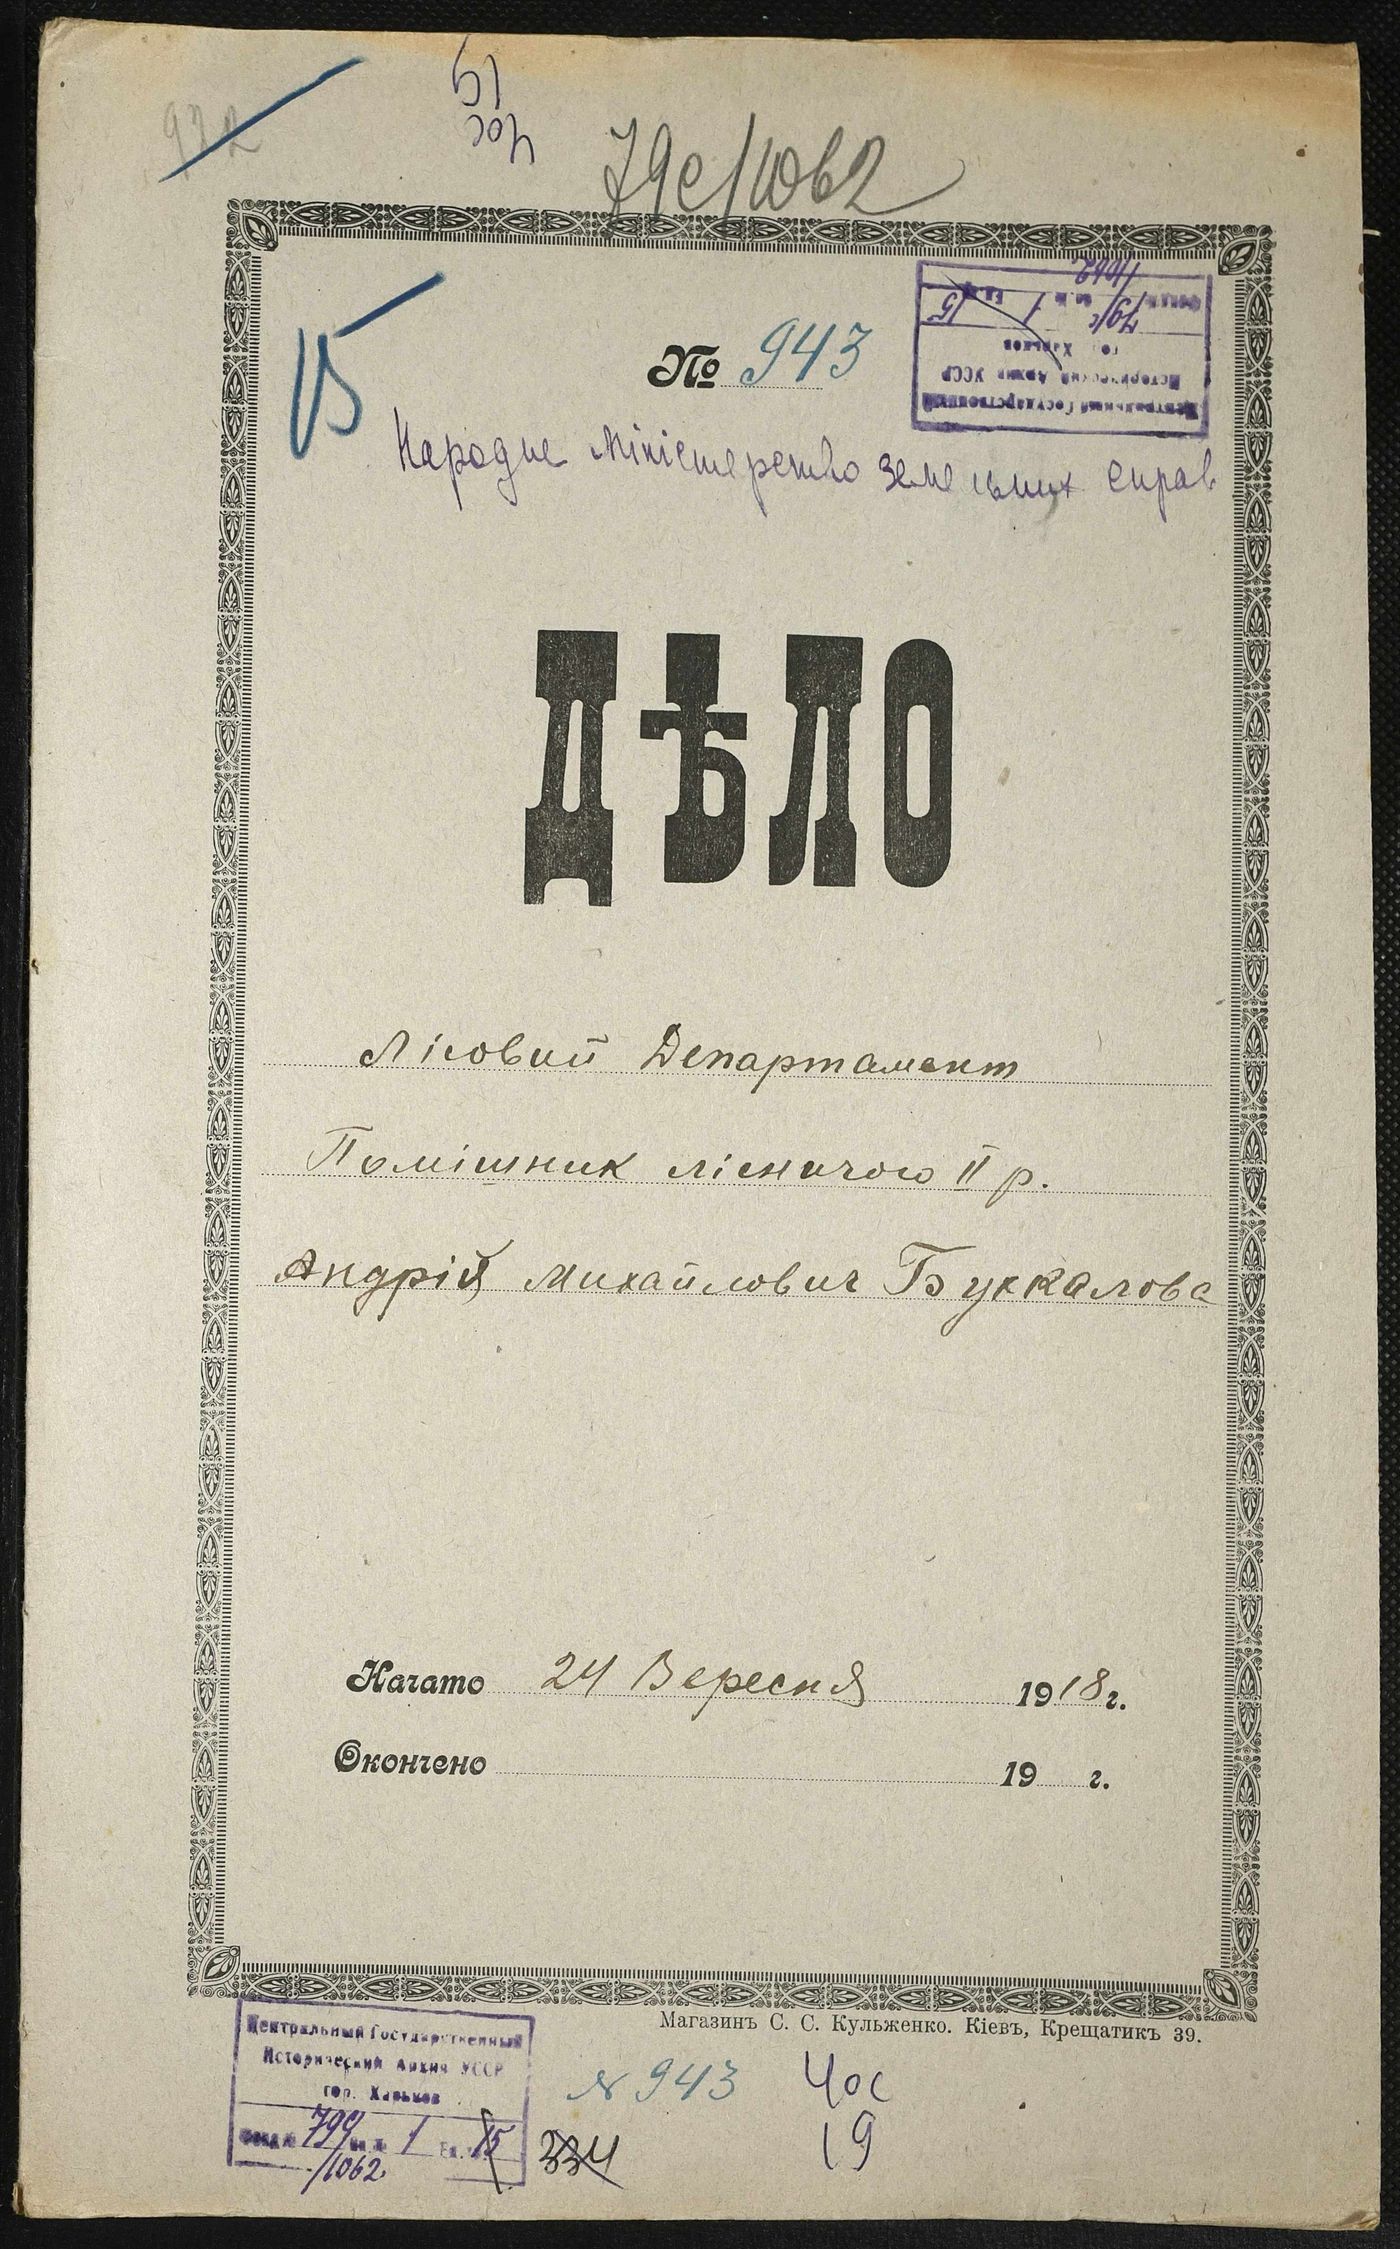 932
19
Чос
79с/1062
15
№ 943
Центральный Государственный
Исторический Архив УССР
гор. Харьков
Фонд № 79с/1062 оп. № 1 Ед. 15
Народне Міністерство земельних справ
ДѢЛО
Лісовий Департамент
Помішник лісничого II р.
Андрій Михайлович Буккалова
Начато 24 Вересня 1918 г.
Окончено 19 г.
Магазинъ С. С. Кульженко. Кіевъ, Крещатикъ 39.
Центральный Государственный
Исторический Архив УССР
гор. Харьков
Фонд № 799/1062 оп. № 1 Ед. 15
№ 943
Чос
19
334